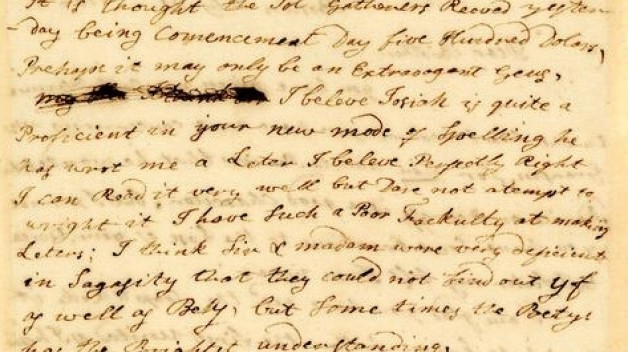 It is thought the Tol Gatherers Receved yester-
day being Comencement Day five Hundred Dolars,
Prehaps it may only be an Extravogant Geus,
my I beleve Josiah is quite a
Proficient in your new mode of Spelling he
has wrot me a Leter I beleve Perfectly Right
I can Read it very well but Dare not atempt to
wright it I have Such a Poor Fackulty at making
Leters; I think Sir & madam ware very deficient
in Sagasity that they could not find out yf
as well as Bety, but some times the Betys
has the Brightst understanding,